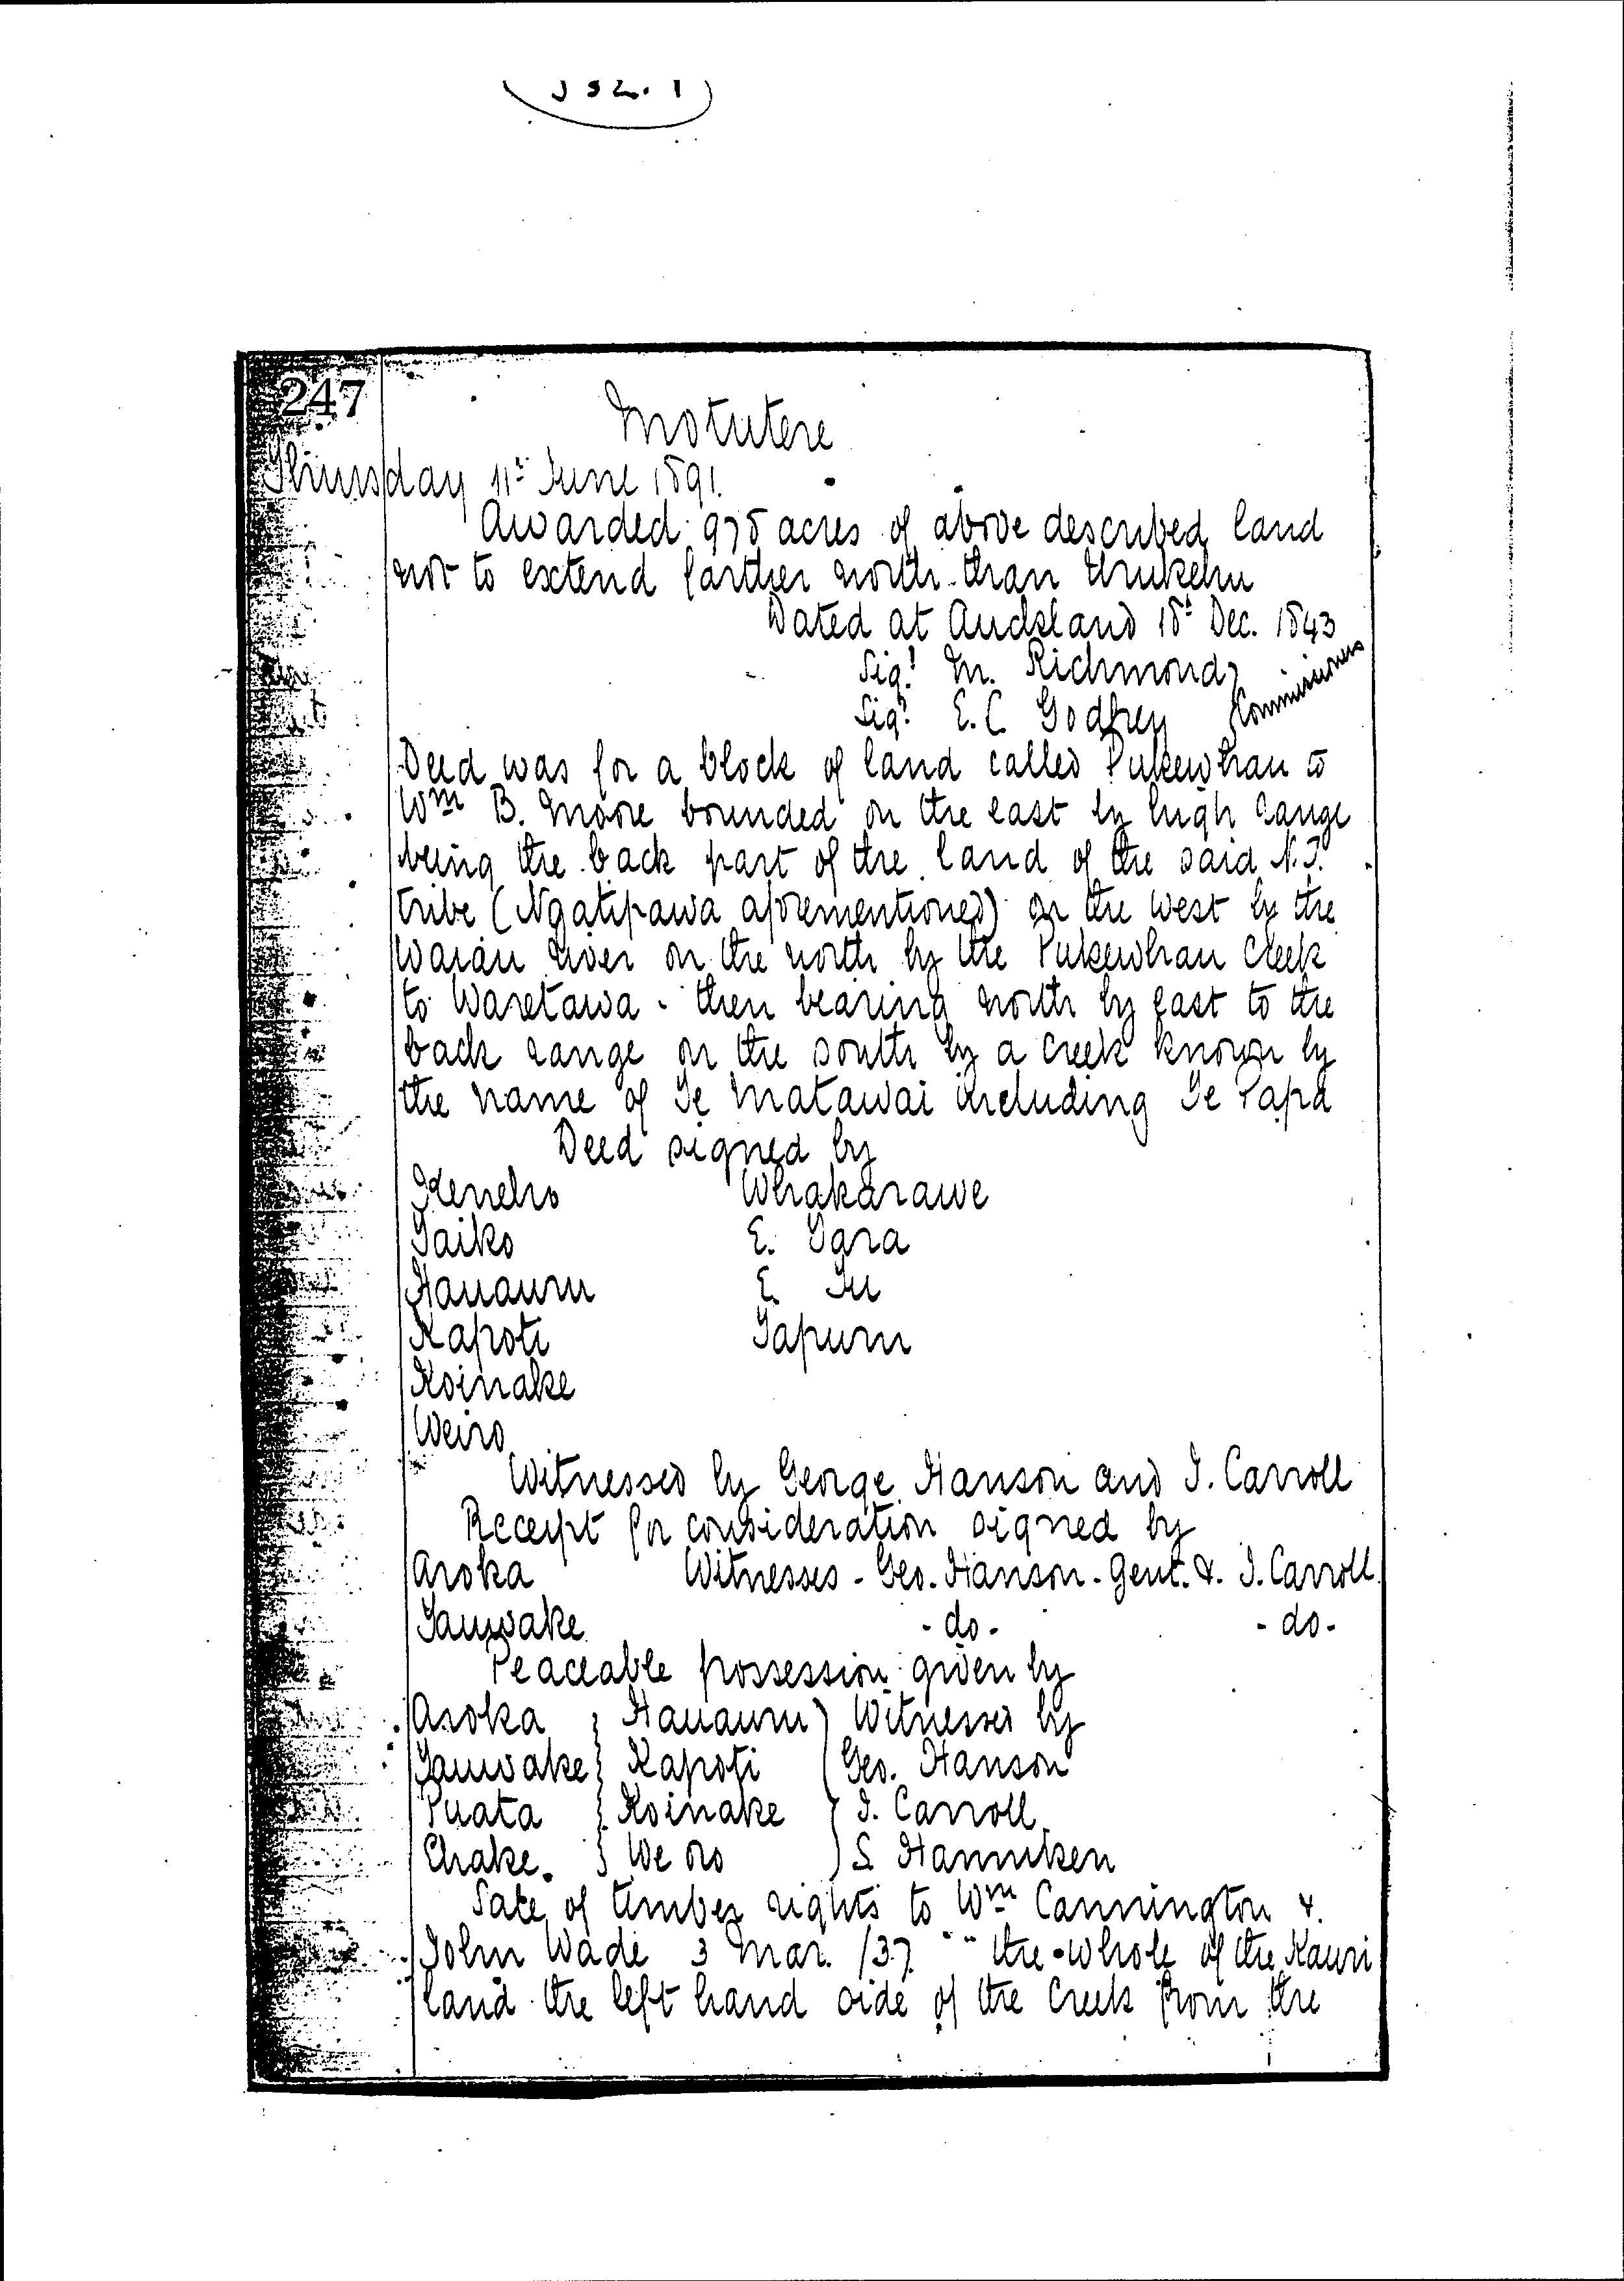 247
Motutere
Thursday 11th June 1891.
Awarded 975 acres of above described land
not to extend farther north than Urukehu
Dated at Auckland 18th Dec. 1843
Sigd M. Richmond
Sigd E. C. Godfrey } Commissioners
Deed was for a block of land called Pukewhau to
Wm B. Moore bounded on the east by high range
being the back part of the land of the said N.P.
tribe (Ngatipawa aforementioned) on the west by the
Waiau river on the north by the Pukewhau Creek
to Waretawa - then bearing north by east to the
back range on the south by a creek known by
the name of Te Matawai including Te Papa
Deed signed by
Keneho Whakarawe
Taiko E. Tara
Hauauru E. Tu
Kapoti Tapuru
Koinake
Weiro
Witnessed by George Hanson and J. Carroll
Receipt for consideration signed by
Aroka Witnesses - Geo. Hanson - Gent. & J. Carroll
Tauwake - do - - do -
Peaceable possession given by
Aroka } Hauauru } Witnessed by
Tauwake } Kapoti } Geo. Hanson
Puata } Koinake } J. Carroll
Chake. } We ro } S.
Sale of timber rights to Wm Cannington &
John Wade 3 Mar. /37 " the whole of the Kauri
land the left hand side of the Creek from the